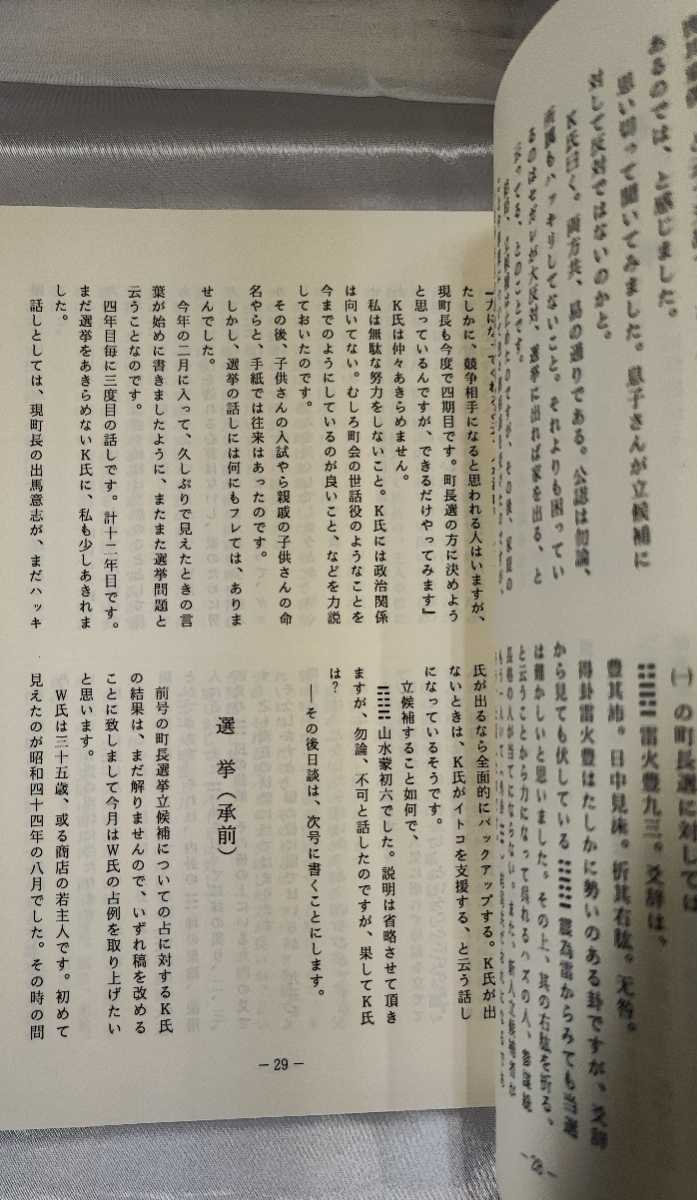 あるのでは、と感じました。
思い切って聞いてみました。息子さんが立候補に
対して反対ではないのかと。
K氏曰く。両方共、易の通りである。公認は勿論、
もハッキリしてないこと。それよりも困ってい
るのはセガレが大反対、選挙に出れば家を出る、と
云っている、とのことです。
㈠の町長選に対しては
䷶ 雷火豊九三。爻辞は、
豊其沛。日中見沬。折其右肱。无咎。
得卦雷火豊はたしかに勢いのある卦ですが、爻辞
から見ても伏している ䷲ 震為雷からみても当選
は難かしいと思いました。その上、其の右肱を折る、
と云うことから力になって呉れるハズの人、
－28－
たしかに、競争相手になると思われる人はいますが、
現町長も今度で四期目です。町長選の方に決めよう
と思っているんですが、できるだけやってみます』
K氏は仲々あきらめません。
私は無駄な努力をしないこと。K氏には政治関係
は向いてない。むしろ町会の世話役のようなことを
今までのようにしているのが良いこと、などを力説
しておいたのです。
その後、子供さんの入試やら親戚の子供さんの命
名やらと、手紙では往来はあったのです。
しかし、選挙の話しには何にもフレては、ありま
せんでした。
今年の二月に入って、久しぶりで見えたときの言
葉が始めに書きましたように、またまた選挙問題と
云うことなのです。
四年目毎に三度目の話しです。計十二年目です。
まだ選挙をあきらめないK氏に、私も少しあきれま
した。
話しとしては、現町長の出馬意志が、まだハッキ
氏が出るなら全面的にバックアップする。K氏が出
ないときは、K氏がイトコを支援する、と云う話し
になっているそうです。
立候補すること如何で、
䷃ 山水蒙初六でした。説明は省略させて頂き
ますが、勿論、不可と話したのですが、果してK氏
は？
──その後日談は、次号に書くことにします。
選挙（承前）
前号の町長選挙立候補についての占に対するK氏
の結果は、まだ解りませんので、いずれ稿を改める
ことに致しまして今月はW氏の占例を取り上げたい
と思います。
W氏は三十五歳、或る商店の若主人です。初めて
見えたのが昭和四十四年の八月でした。その時の問
－29－